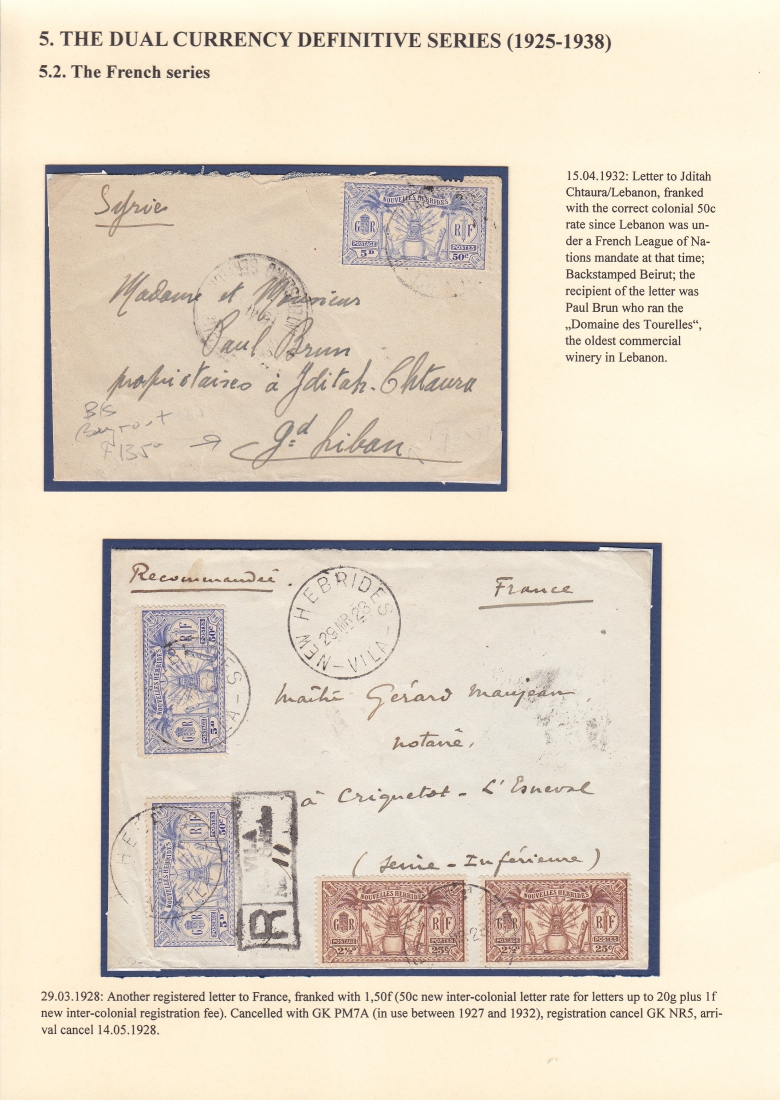 5. THE DUAL CURRENCY DEFINITIVE SERIES (1925-1938)
5.2. The French series
15.04.1932: Letter to Jditah
Chtaura/Lebanon, franked
with the correct colonial 50c
rate since Lebanon was un-
der a French League of Na-
tions mandate at that time;
Backstamped Beirut; the
recipient of the letter was
Paul Brun who ran the
„Domaine des Tourelles“,
the oldest commercial
winery in Lebanon.
Syrie
NOUVELLES HEBRIDES
G R
R F
POSTAGE
POSTES
5D
50c
Madame et Monsieur
Paul Brun
propriétaires à Jditah-Chtaura
gd Liban
B/S
Beyrout
Recommandée.
France
NEW HEBRIDES
29 MR 28
VILA
NOUVELLES HEBRIDES
G R
R F
POSTAGE
POSTES
5D
50c
Maître Gérard Maujean
notaire,
à Criquetot-L'Esneval
(Seine-Inférieure)
NOUVELLES HEBRIDES
G R
R F
POSTAGE
POSTES
5D
50c
R
VILA
No 11
NOUVELLES HEBRIDES
G R
R F
POSTAGE
POSTES
2½D
25c
NOUVELLES HEBRIDES
G R
R F
POSTAGE
POSTES
2½D
25c
29.03.1928: Another registered letter to France, franked with 1,50f (50c new inter-colonial letter rate for letters up to 20g plus 1f
new inter-colonial registration fee). Cancelled with GK PM7A (in use between 1927 and 1932), registration cancel GK NR5, arri-
val cancel 14.05.1928.